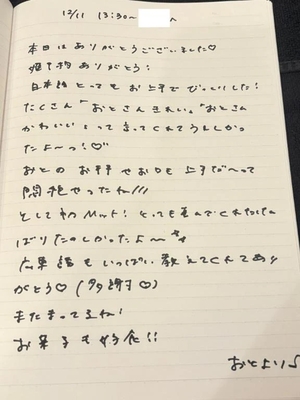 12/11 13:30~
本日はありがとうございました♡
ありがとう!
日本語とってもお上手でびっくりした!
たくさん「おとさんきれい」「おとさん
かわいい」って言ってくれてうれしかっ
たよ〜っ!♡
おとの お手手やお口も上手だ〜って
ったね///
そして とっても てくれた
ばりたのしかったよ〜
広東語もいっぱい教えてくれてあり
がとう♡(多謝♡)
またまってるね!
お菓子も好食!!
おとより♪